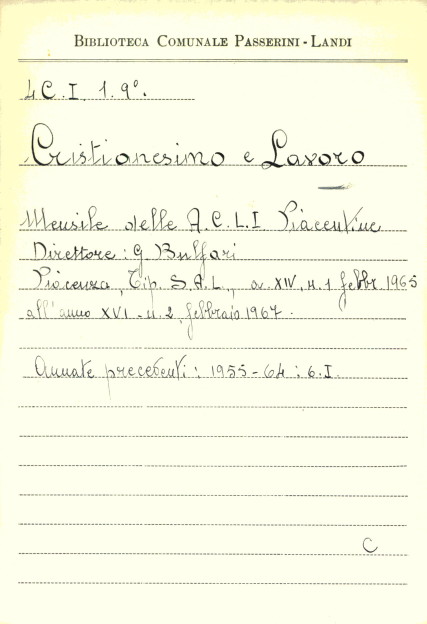 BIBLIOTECA COMUNALE PASSERINI - LANDI
4 C. I. 1. 9°.
Cristianesimo e Lavoro
Mensile delle A.C.L.I Piacentine
Direttore: G. Bulfari
Piacenza, Tip. S.A.L., a. XIV, n. 1 febbr. 1965
all'anno XVI - n. 2, febbraio 1967.
Annate precedenti: 1955 - 64: 6. I.
C